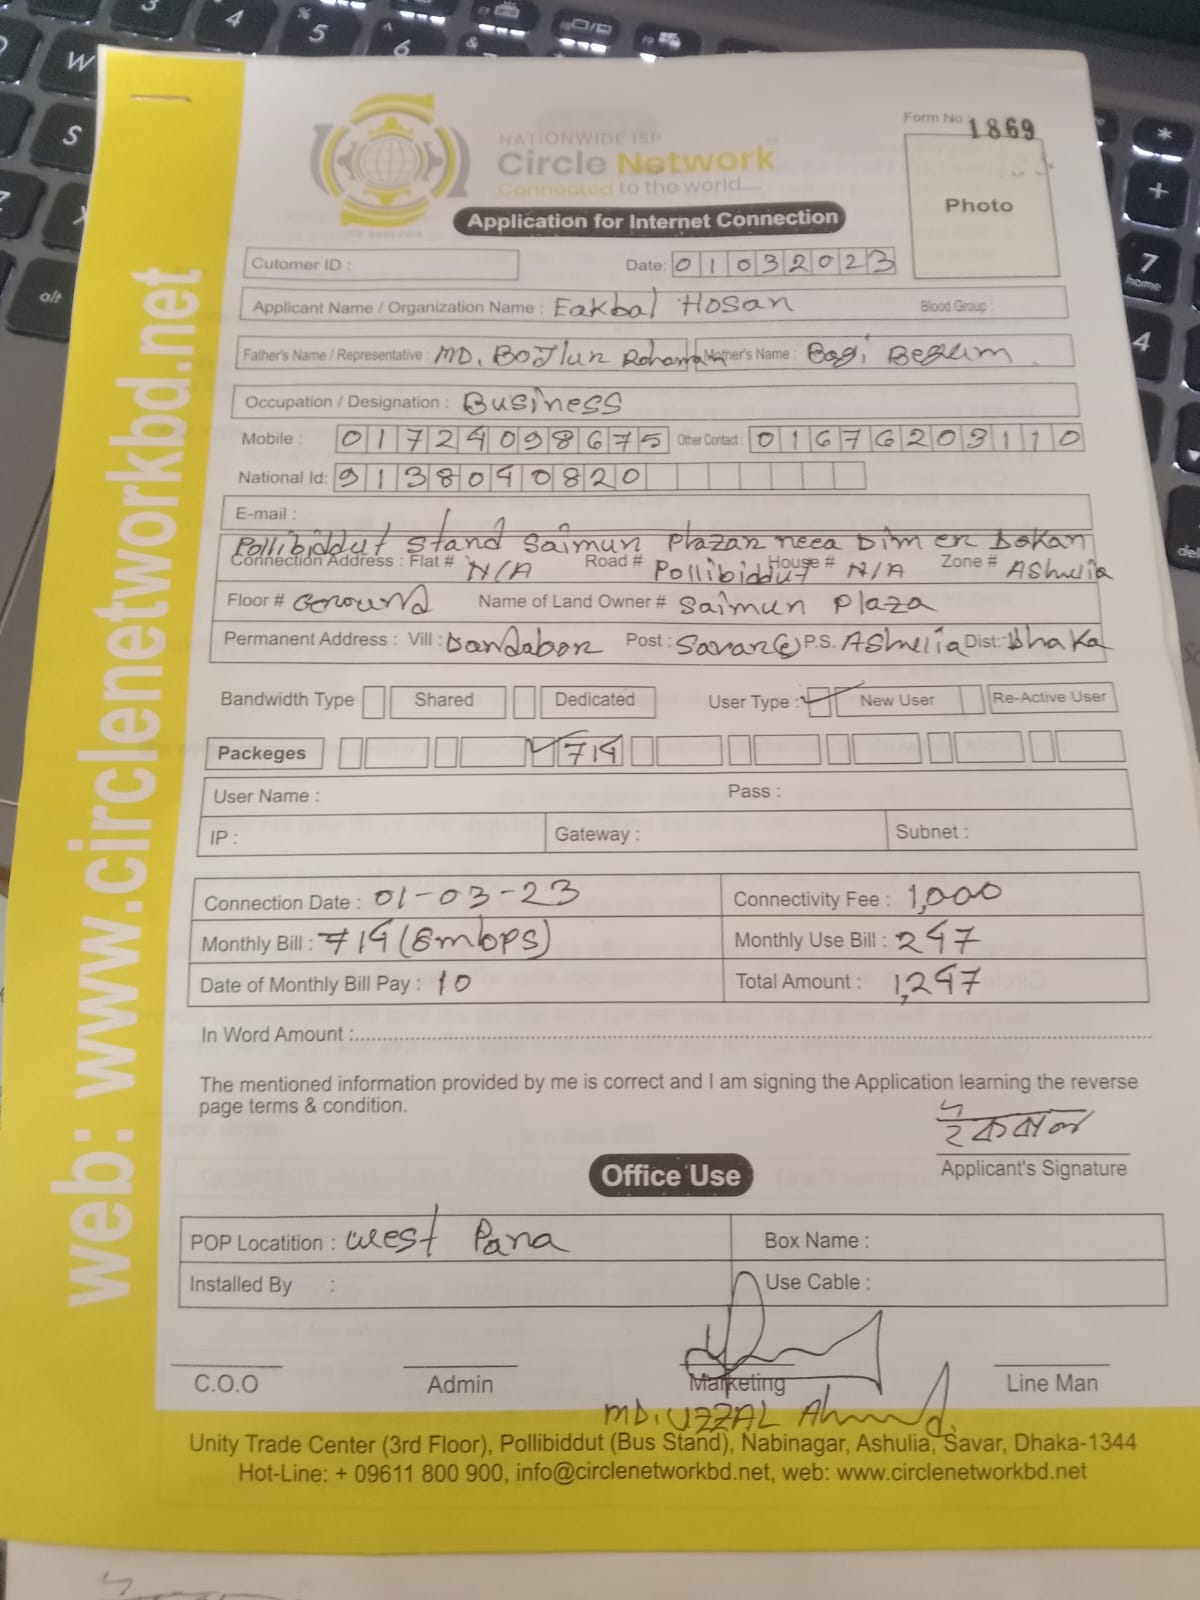 Form No 1869
NATIONWIDE ISP
Circle Network
Connected to the world....
Photo
Application for Internet Connection
Cutomer ID : Date: 01032023
Applicant Name / Organization Name : Eakbal Hosan Blood Group :
Father's Name / Representative : MD. BoJlur Rohaman Mother's Name : Bagi Begum
Occupation / Designation : Business
Mobile : 01724098675 Other Contact : 01676203110
National Id: 9138040820
E-mail :
Pollibiddut Stand Saimun Plazar neea Dim er Dokan
Connection Address : Flat # N/A Road # Pollibiddut House # N/A Zone # AShulia
Floor # Goround Name of Land Owner # Saimun Plaza
Permanent Address : Vill : Dandabor Post : Savar(c) P.S. AShulia Dist: Dhaka
Bandwidth Type Shared Dedicated User Type : New User Re-Active User
Packeges 714
User Name : Pass :
IP : Gateway : Subnet :
Connection Date : 01-03-23 Connectivity Fee : 1,000
Monthly Bill : 714 (8mbps) Monthly Use Bill : 247
Date of Monthly Bill Pay : 10 Total Amount : 1,247
In Word Amount :
The mentioned information provided by me is correct and I am signing the Application learning the reverse
page terms & condition.
ইকবাল
Applicant's Signature
Office Use
POP Locatition : West Para Box Name :
Installed By : Use Cable :
C.O.O Admin Marketing Line Man
MD. UZZAL Ahmed.
Unity Trade Center (3rd Floor), Pollibiddut (Bus Stand), Nabinagar, Ashulia, Savar, Dhaka-1344
Hot-Line: + 09611 800 900, info@circlenetworkbd.net, web: www.circlenetworkbd.net
web: www.circlenetworkbd.net